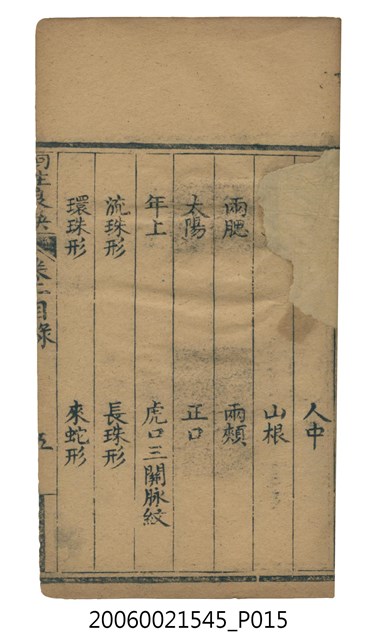 人中
山根
兩腮 兩頰
太陽 正口
年上 虎口三關脉紋
流珠形 長珠形
環珠形 來蛇形
卷二目錄 五
20060021545_P015